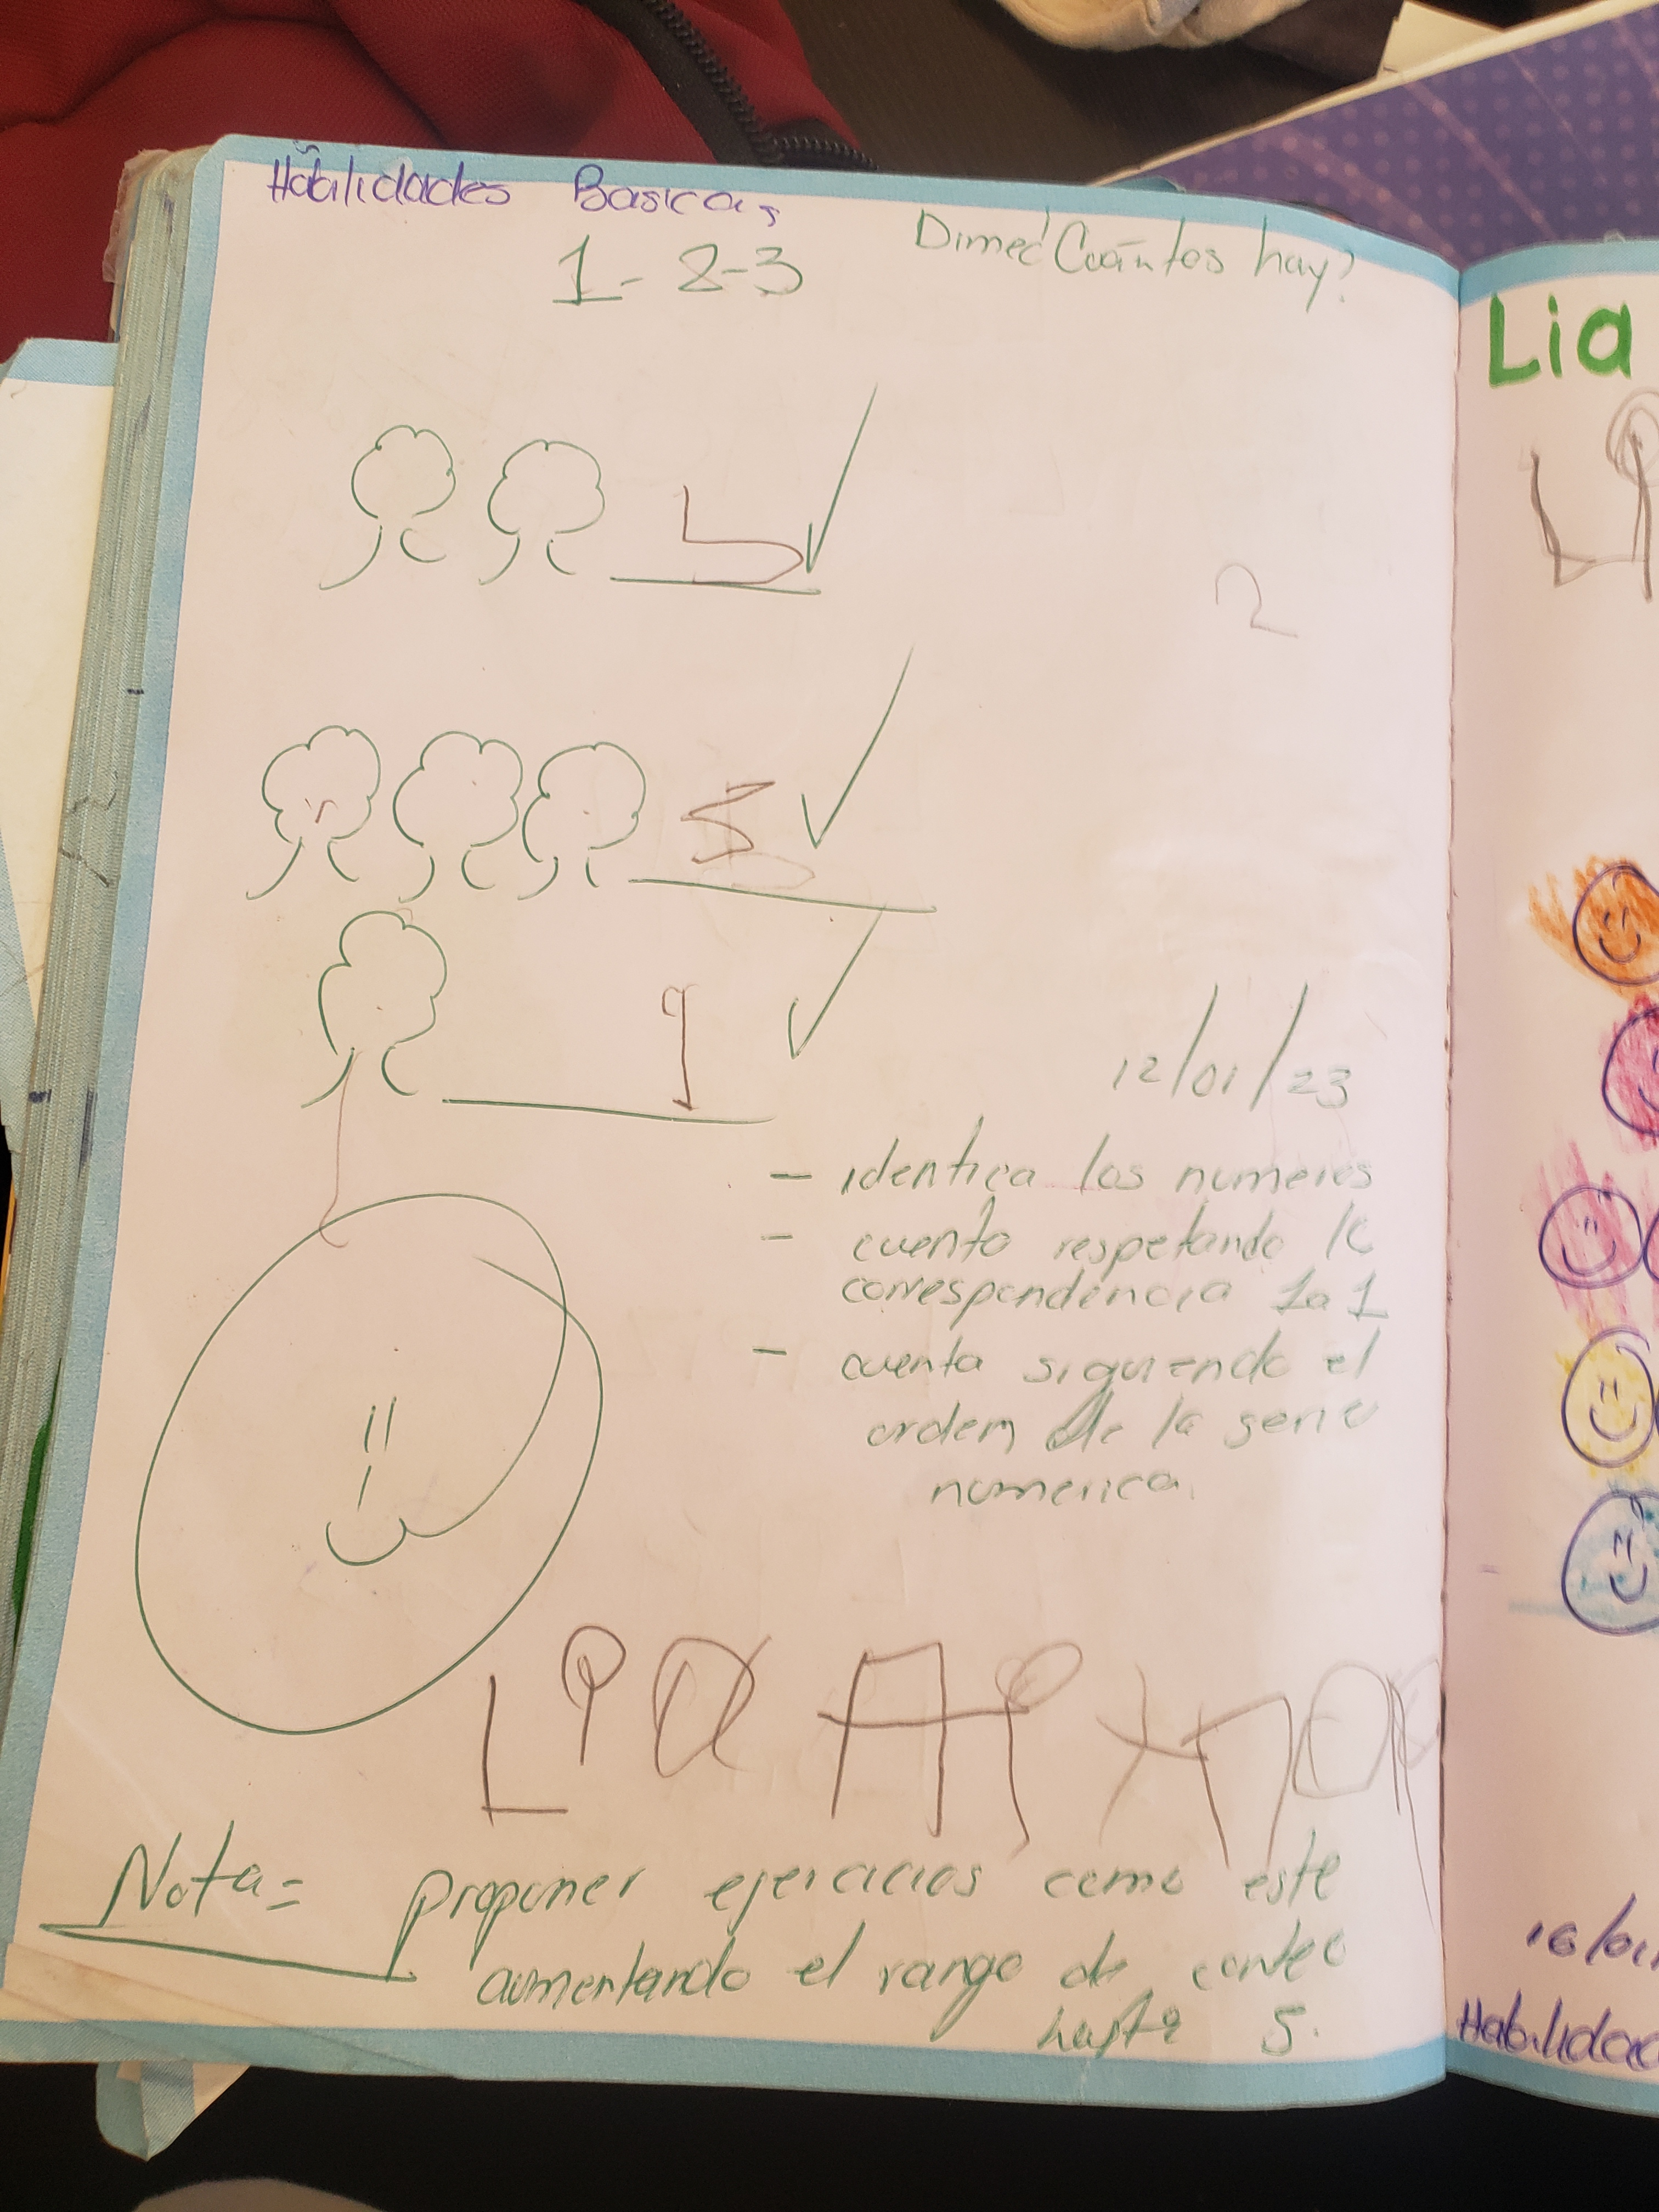 Habilidades Basicas
1-2-3
Dime ¿Cuántos hay?
2
12/01/23
- identica los numeros
- cuento respetando la
correspondencia 1 a 1
- cuenta siguiendo el
orden de la serie
numerica.
Lia
Nota= proponer ejercicios como este
aumentando el rango de conteo
hasta 5.
Lia
Li
Habilidad